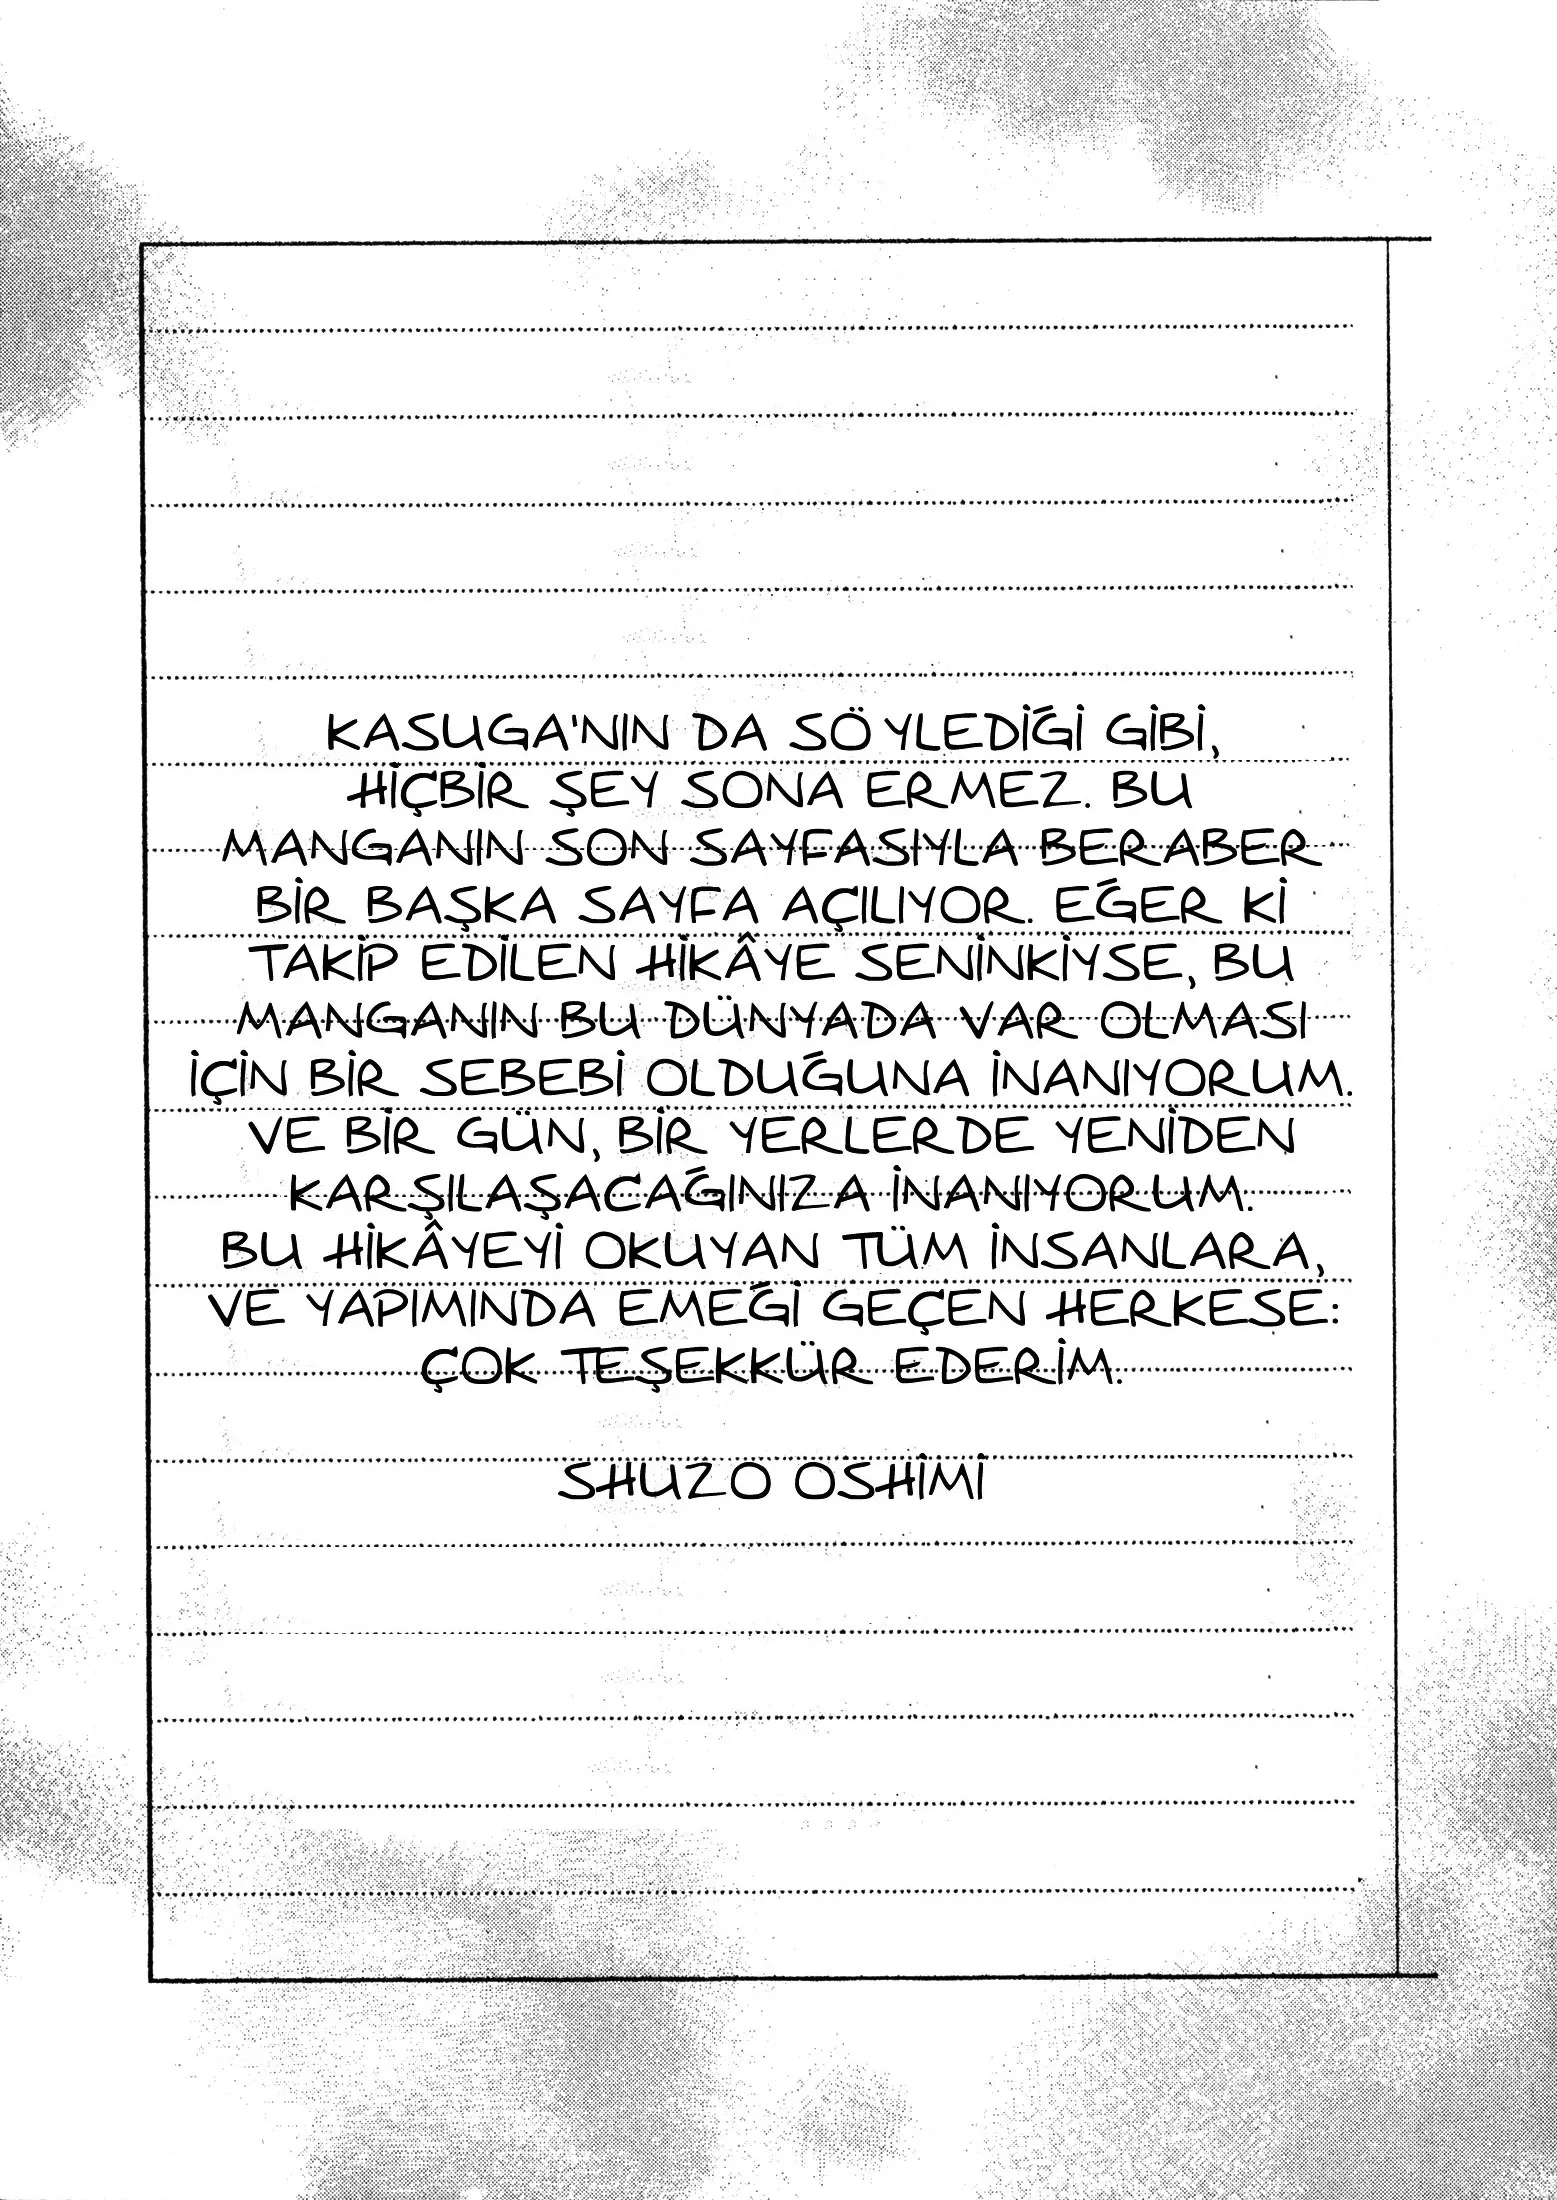 KASUGA'NIN DA SÖYLEDİĞİ GİBİ,
HİÇBİR ŞEY SONA ERMEZ. BU
MANGANIN SON SAYFASIYLA BERABER
BİR BAŞKA SAYFA AÇILIYOR. EĞER Kİ
TAKİP EDİLEN HİKÂYE SENİNKİYSE, BU
MANGANIN BU DÜNYADA VAR OLMASI
İÇİN BİR SEBEBİ OLDUĞUNA İNANIYORUM.
VE BİR GÜN, BİR YERLERDE YENİDEN
KARŞILAŞACAĞINIZA İNANIYORUM.
BU HİKÂYEYİ OKUYAN TÜM İNSANLARA,
VE YAPIMINDA EMEĞİ GEÇEN HERKESE:
ÇOK TEŞEKKÜR EDERİM.
SHUZO OSHİMİ